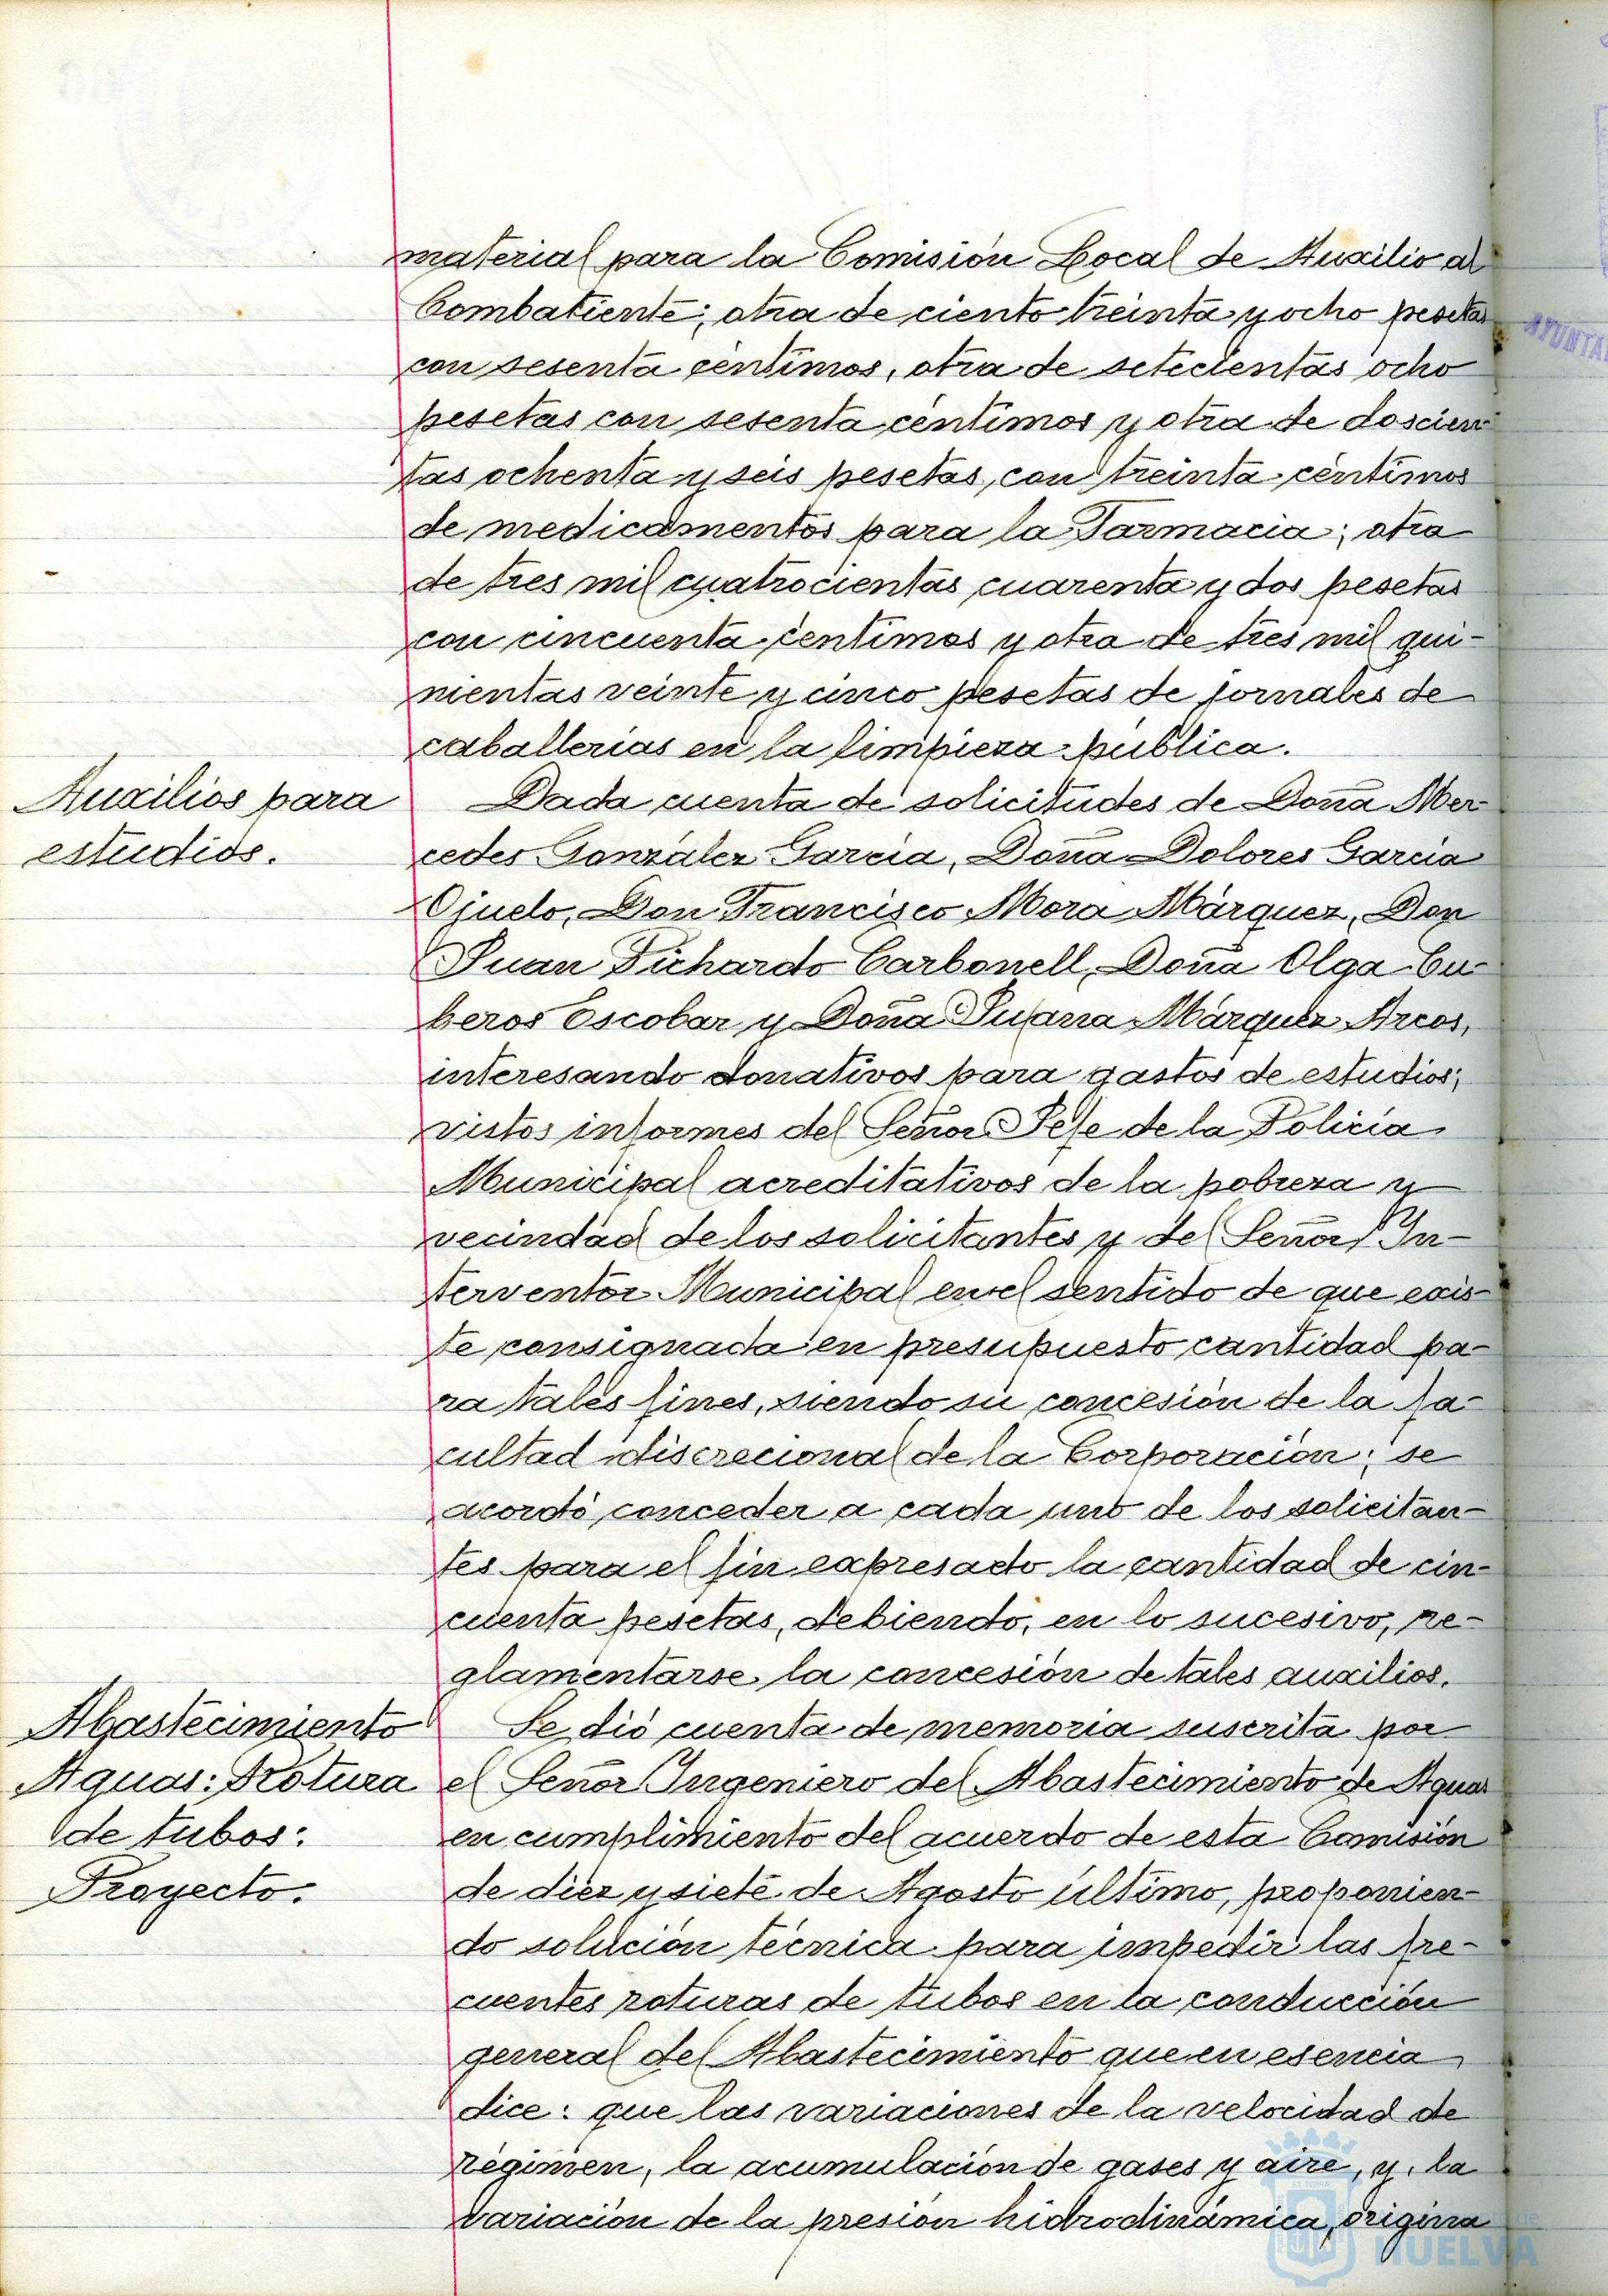 material para la Comisión Local de Auxilio al
Combatiente; otra de ciento treinta y ocho pesetas
con sesenta céntimos, otra de setecientas ocho
pesetas con sesenta céntimos y otra de doscien-
tas ochenta y seis pesetas, con treinta céntimos
de medicamentos para la Farmacia; otra
de tres mil cuatrocientas cuarenta y dos pesetas
con cincuenta centimos y otra de tres mil qui-
nientas veinte y cinco pesetas de jornales de
caballerías en la limpieza pública.
Auxilios para
estudios.
Dada cuenta de solicitudes de Doña Mer-
cedes González García, Doña Dolores García
Ojuelo, Don Francisco Mora Márquez, Don
Juan Pichardo Carbonell, Doña Olga Cu-
beros Escobar y Doña Juana Márquez Arcos,
interesando donativos para gastos de estudios;
vistos informes del Señor Jefe de la Policía
Municipal acreditativos de la pobreza y
vecindad de los solicitantes y del Señor In-
terventor Municipal en el sentido de que exis-
te consignada en presupuesto cantidad pa-
ra tales fines, siendo su concesión de la fa-
cultad discrecional de la Corporación; se
acordó conceder a cada uno de los solicitan-
tes para el fin expresado la cantidad de cin-
cuenta pesetas, debiendo, en lo sucesivo, re-
glamentarse la concesión de tales auxilios.
Abastecimiento
Aguas: Rotura
de tubos:
Proyecto.
Se dió cuenta de memoria suscrita por
el Señor Ingeniero del Abastecimiento de Aguas
en cumplimiento del acuerdo de esta Comisión
de diez y siete de Agosto último, proponien-
do solución técnica para impedir las fre-
cuentes roturas de tubos en la conducción
general del Abastecimiento que en esencia
dice: que las variaciones de la velocidad de
régimen, la acumulación de gases y aire, y, la
variación de la presión hidrodinámica, origina
HUELVA